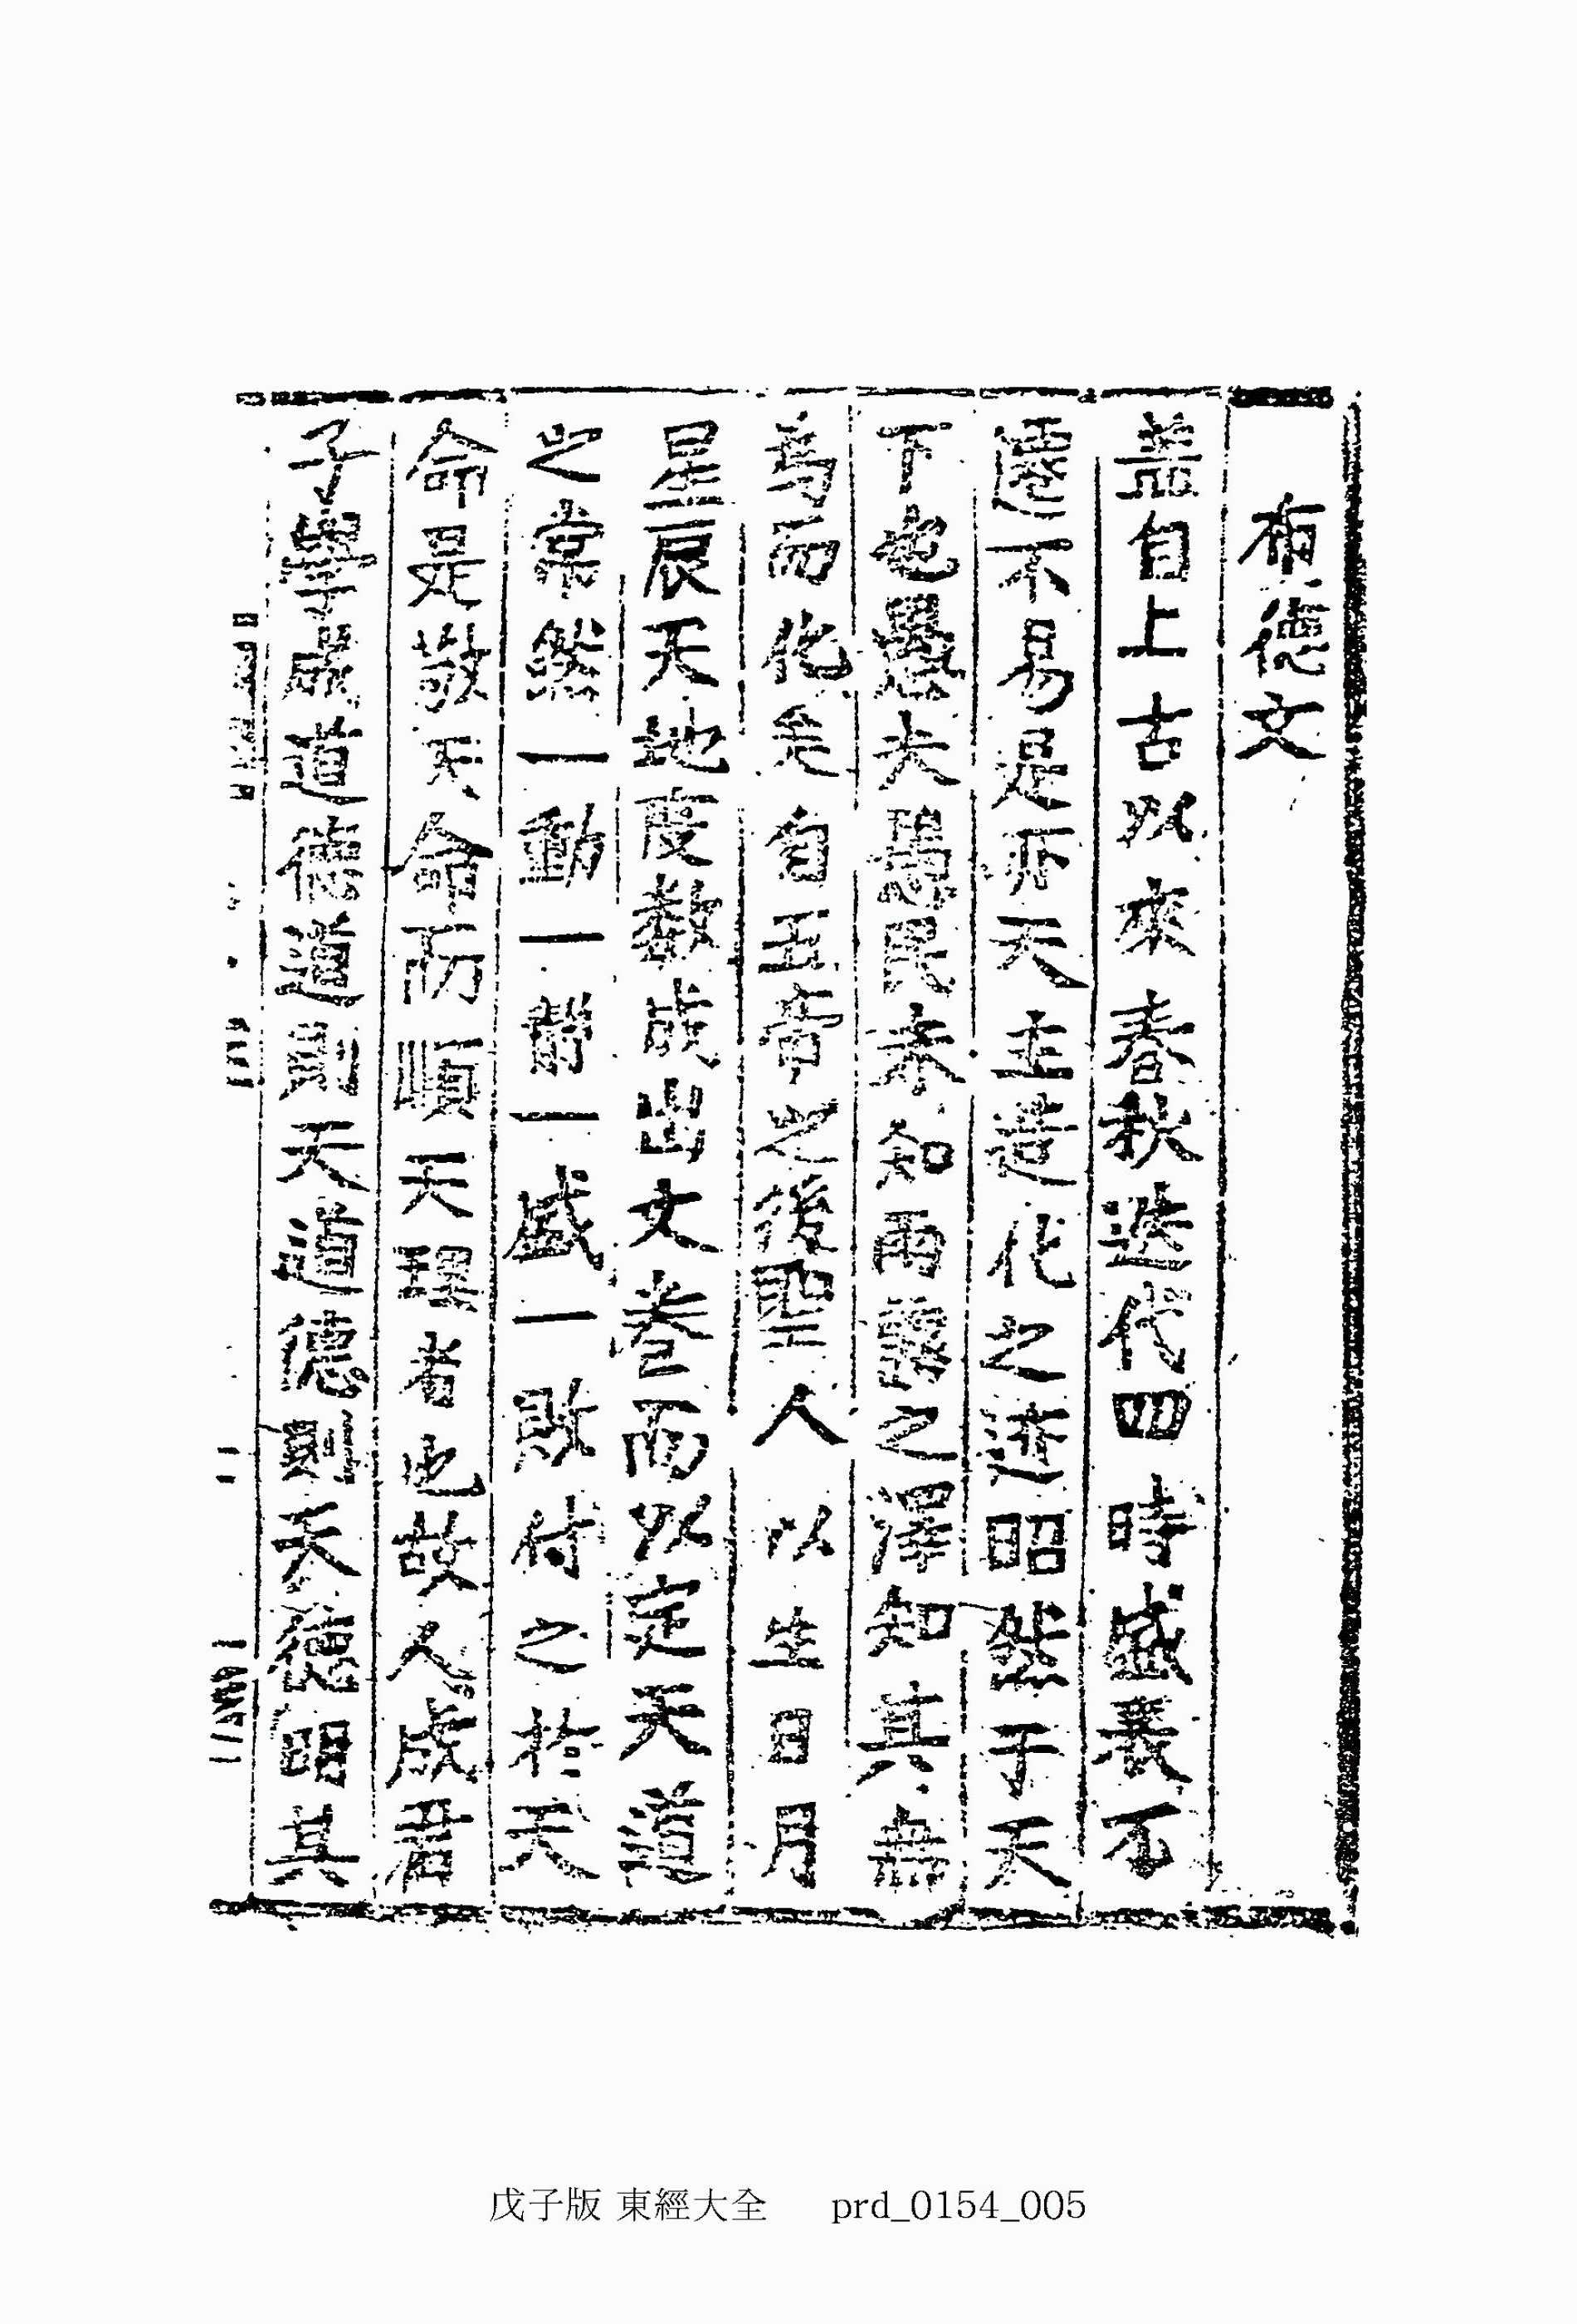 布德文
盖自上古以來春秋迭代四時盛衰不
遷不易是亦天主造化之迹昭然于天
下也愚夫愚民未知雨露之澤知其無
爲而化矣自五帝之後聖人以生日月
星辰天地度數成出文卷而以定天道
之常然一動一靜一盛一敗付之於天
命是敬天命而順天理者也故人成君
子學成道德道則天道德則天德明其
戊子版 東經大全 prd_0154_005